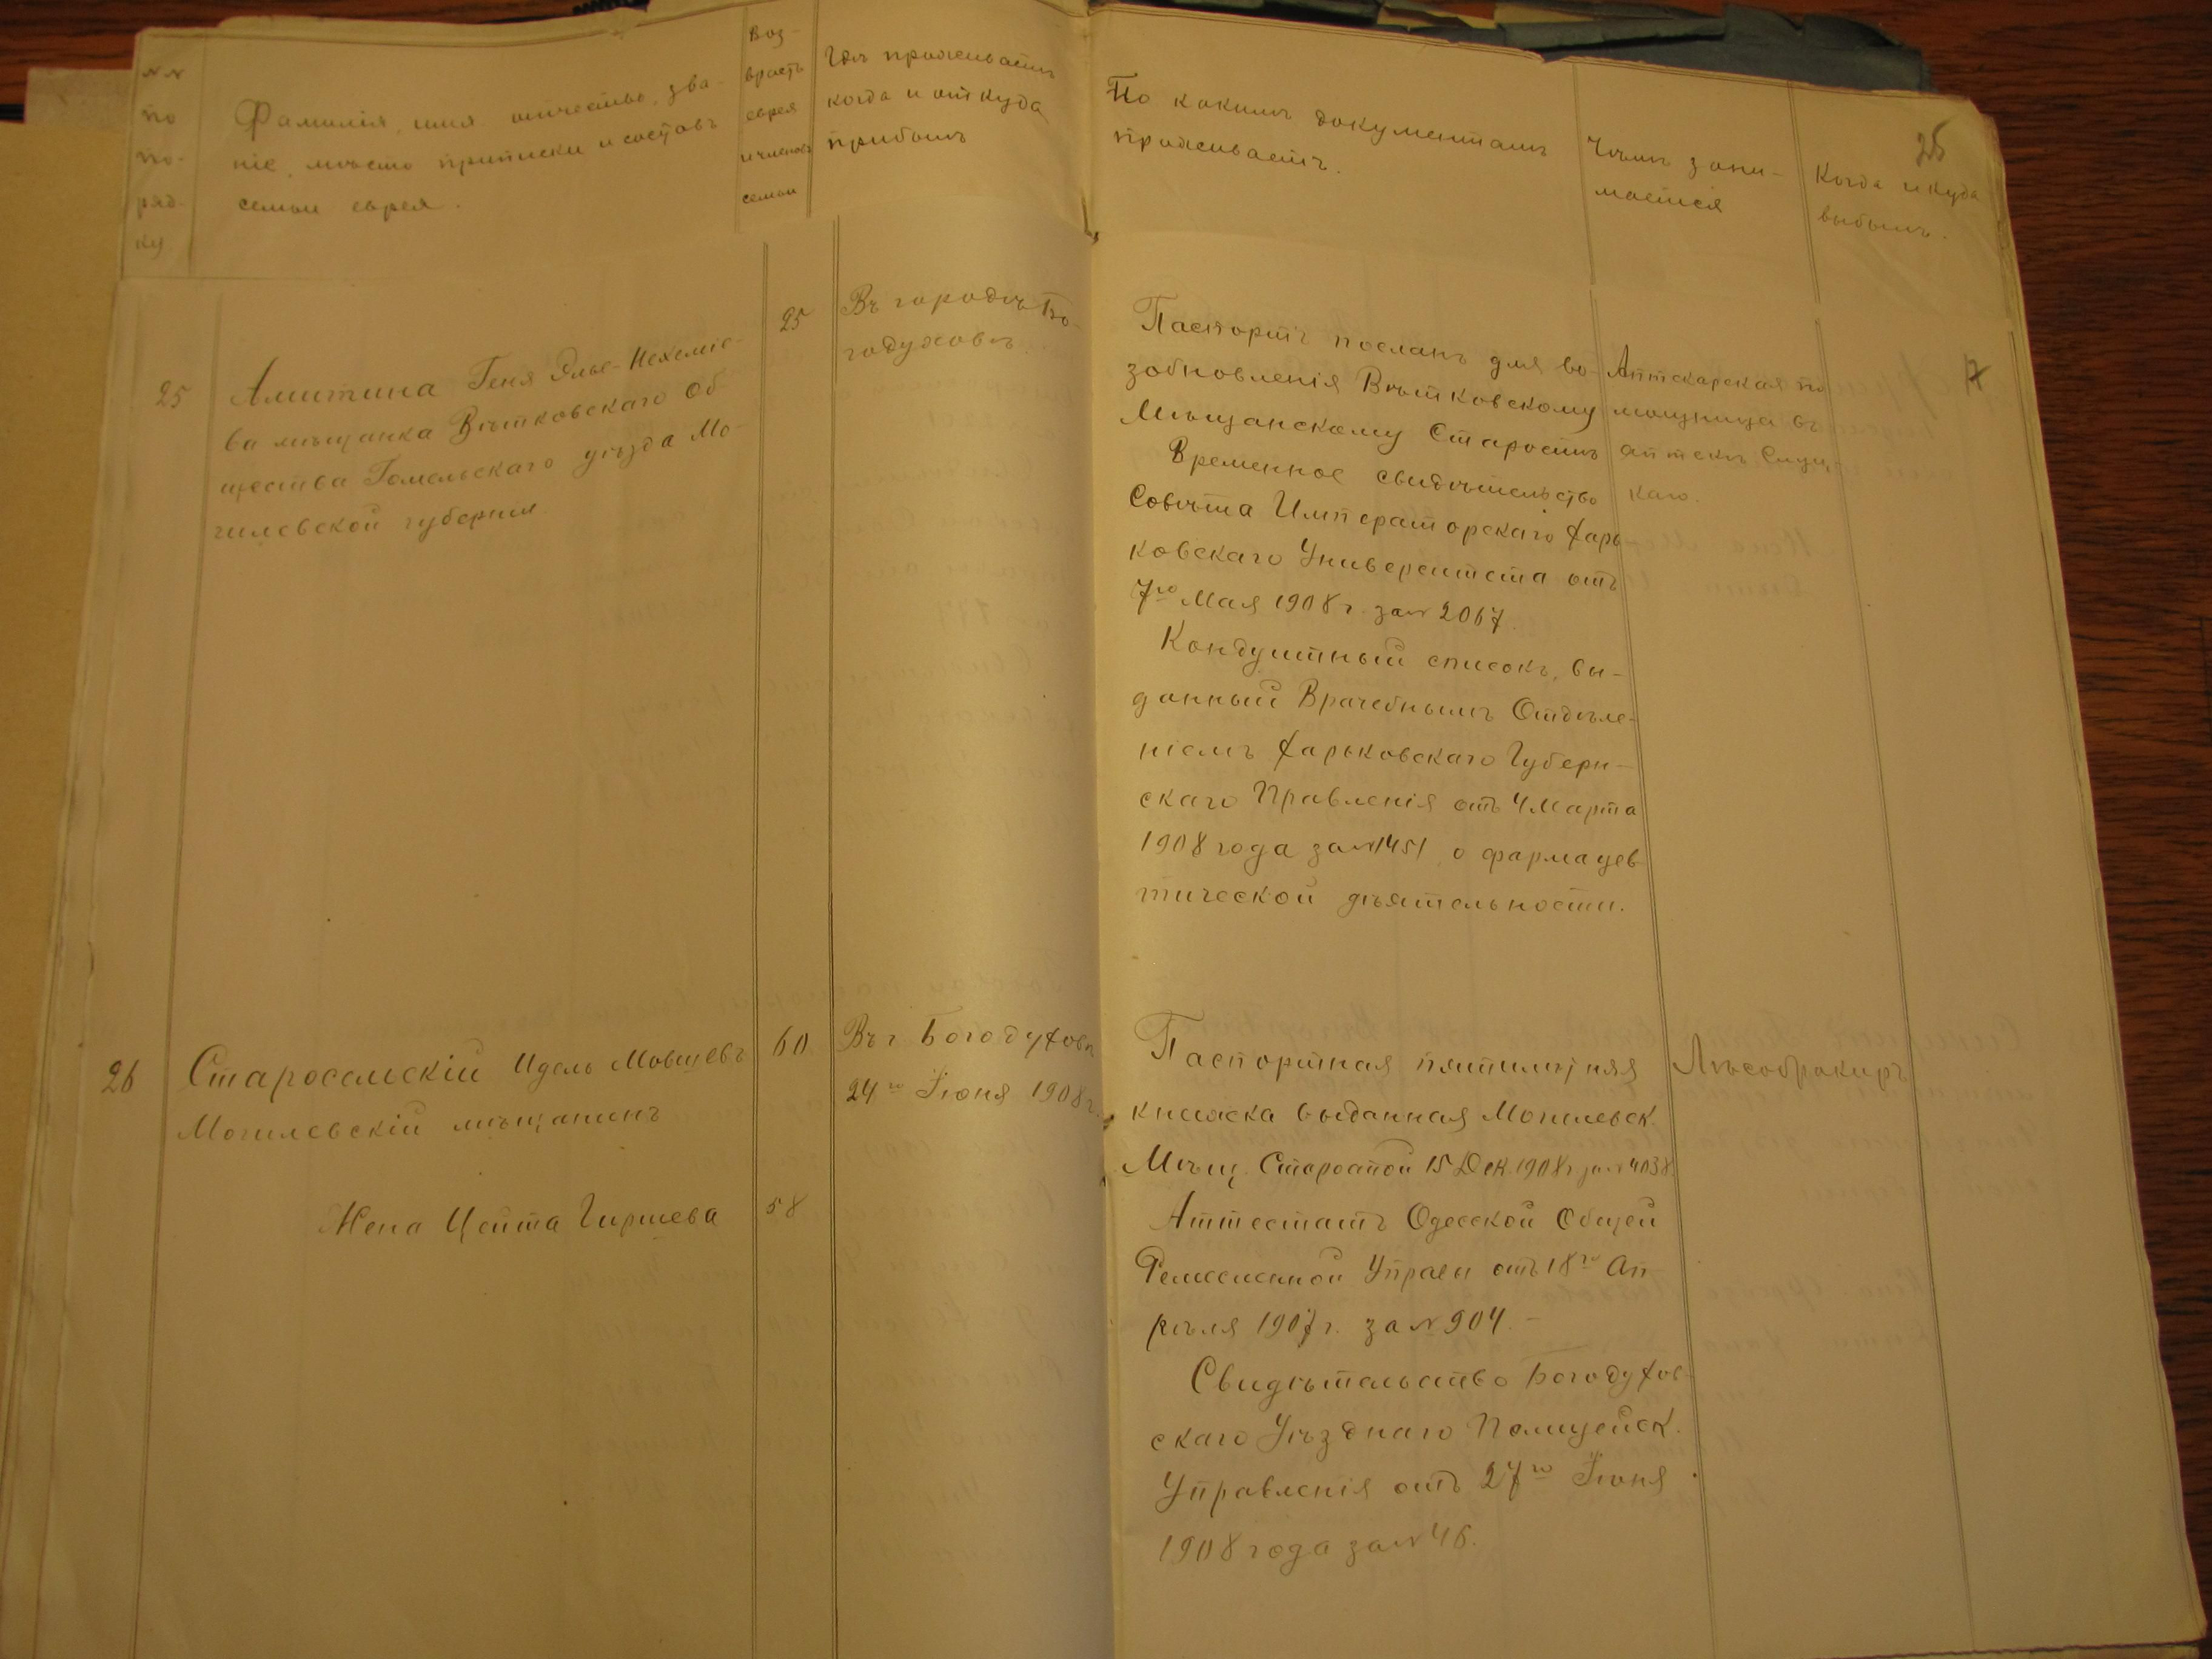 №№
по
по-
ряд-
ку
Фамилія, имя отчество, зва-
ніе, мѣсто приписки и составъ
семьи еврея.
Воз-
врастъ
еврея
и членовъ
семьи
Гдѣ проживаетъ
когда и откуда
прибылъ
По какимъ документамъ
проживаетъ.
Чѣмъ зани-
мается
Когда и куда
выбылъ.
25
25
Амитина Геня Элье-Нехеміе-
ва мѣщанка Вѣтковскаго Об
щества Гомельскаго уѣзда Мо-
гилевской губерніи
25
Въ городѣ Бо-
годуховѣ
Паспортъ посланъ для во-
зобновленія Вѣтковскому
Мѣщанскому Старостѣ
Временное свидѣтельство
Совѣта Императорскаго Харь
ковскаго Университета отъ
7го Мая 1908 г. за № 2067.
Кондуитный списокъ, вы-
данный Врачебнымъ Отдѣле-
ніемъ Харьковскаго Губерн-
скаго Правленія отъ 4 Марта
1908 года за №1451, о фармацев
тической дѣятельности.
Аптекарская по
мощница въ
аптекѣ
каго.
26
Старосельскій Идель Мовшевъ
Могилевскій мѣщанинъ
Жена Цейта Гиршева
60
58
Въ г Богодуховѣ
24го Іюня 1908 г.
Паспортная пятилѣтняя
книжка выданная Могилевск.
Мѣщ. Старостой 15 Дек. 1908 г за № 4038.
Аттестатъ Одесской Общей
Ремесленной Управы отъ 18го Ап-
рѣля 1907 г. за № 904. -
Свидѣтельство Богодухов-
скаго Уѣзднаго Полицейск.
Управленія отъ 27го Іюня
1908 года за № 46.
Лѣсобракиръ